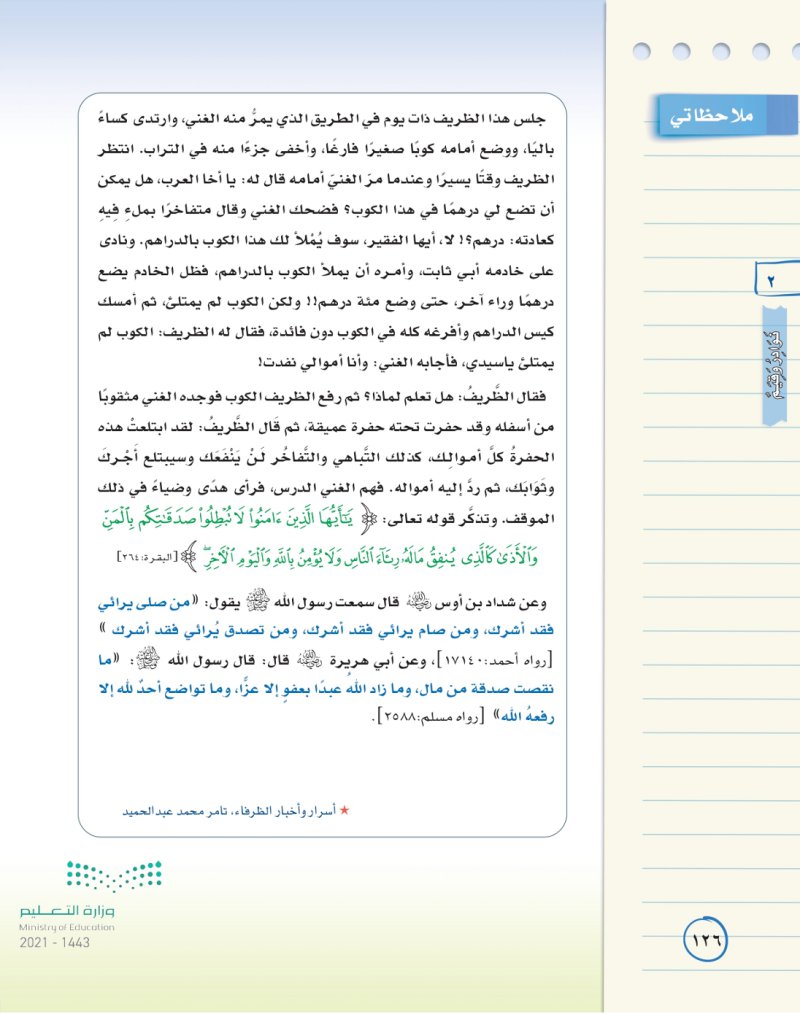 ملاحظاتي
٢
نَوَادِرُ وَقِيَمٌ
جلس هذا الظريف ذات يوم في الطريق الذي يمرُّ منه الغني، وارتدى كساءً
باليًا، ووضع أمامه كوبًا صغيرًا فارغًا، وأخفى جزءًا منه في التراب. انتظر
الظريف وقتًا يسيرًا وعندما مرّ الغنيّ أمامه قال له: يا أخا العرب، هل يمكن
أن تضع لي درهمًا في هذا الكوب؟ فضحك الغني وقال متفاخرًا بملءِ فِيهِ
كعادته: درهم؟! لا، أيها الفقير، سوف يُمْلأ لك هذا الكوب بالدراهم. ونادى
على خادمه أبي ثابت، وأمـره أن يملأ الكوب بالدراهم، فظل الخادم يضع
درهمًا وراء آخـر، حتى وضع مئة درهم!! ولكن الكوب لم يمتلئ، ثم أمسك
كيس الدراهم وأفرغه كله في الكوب دون فائدة، فقال له الظريف: الكوب لم
يمتلئ ياسيدي، فأجابه الغني: وأنا أموالي نفدت!
فقال الظَّريفُ: هل تعلم لماذا؟ ثم رفع الظريف الكوب فوجده الغني مثقوبًا
من أسفله وقد حفرت تحته حفرة عميقة، ثم قَال الظَّريفُ: لقد ابتلعتْ هذه
الحفرةُ كلَّ أموالِك، كذلك التَّباهي والتَّفاخُر لَـنْ يَنْفَعَك وسيبتلع أَجْرَكَ
وثَوَابَك، ثم ردَّ إليه أمواله. فهم الغني الدرس، فرأى هدًى وضياءً في ذلك
الموقف. وتذكَّر قوله تعالى: ﴿ يَٰٓأَيُّهَا ٱلَّذِينَ ءَامَنُوا۟ لَا تُبْطِلُوا۟ صَدَقَٰتِكُم بِٱلْمَنِّ
وَٱلْأَذَىٰ كَٱلَّذِى يُنفِقُ مَالَهُۥ رِئَآءَ ٱلنَّاسِ وَلَا يُؤْمِنُ بِٱللَّهِ وَٱلْيَوْمِ ٱلْءَاخِرِ ۖ ﴾ [البقرة:٢٦٤]
وعن شداد بن أوس رضي الله عنه قال سمعت رسول الله ﷺ يقول: «من صلى يرائي
فقد أشرك، ومن صام يرائي فقد أشرك، ومن تصدق يُرائي فقد أشرك »
[رواه أحمد:١٧١٤٠]، وعن أبي هريرة رضي الله عنه قال: قال رسول الله ﷺ: «ما
نقصت صدقة من مال، وما زاد اللهُ عبدًا بعفوٍ إلا عزًّا، وما تواضع أحدٌ لله إلا
رفعهُ الله» [رواه مسلم:٢٥٨٨].
★ أسرار وأخبار الظرفاء، تامر محمد عبدالحميد
وزارة التعـليم
Ministry of Education
2021 - 1443
١٢٦